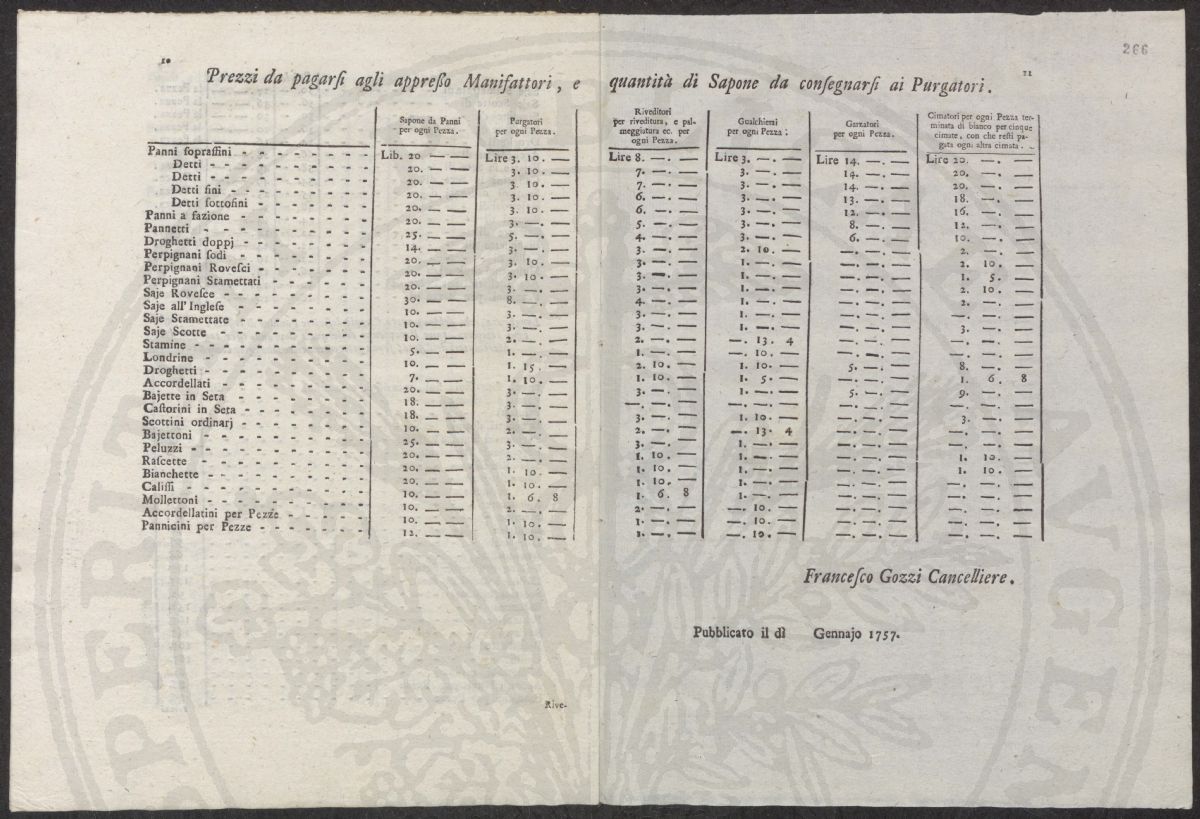 266
10
11
Prezzi da pagarſi agli appreſſo Manifattori, e quantità di Sapone da conſegnarſi ai Purgatori.
Sapone da Panni per ogni Pezza. | Purgatori per ogni Pezza. | Riveditori per riveditura, e palmeggiatura ec. per ogni Pezza. | Gualchierai per ogni Pezza. | Garzatori per ogni Pezza. | Cimatori per ogni Pezza terminata di bianco per cinque cimate, con che reſti pagata ogni altra cimata.
Panni ſopraffini | Lib. 20 — — | Lire 3. 10. — | Lire 8. —. — | Lire 3. —. — | Lire 14. —. — | Lire 20. —. —
Detti | 20. — — | 3. 10. — | 7. —. — | 3. —. — | 14. —. — | 20. —. —
Detti | 20. — — | 3. 10. — | 7. —. — | 3. —. — | 14. —. — | 20. —. —
Detti fini | 20. — — | 3. 10. — | 6. —. — | 3. —. — | 13. —. — | 18. —. —
Detti ſottofini | 20. — — | 3. 10. — | 6. —. — | 3. —. — | 12. —. — | 16. —. —
Panni a fazione | 20. — — | 3. —. — | 5. —. — | 3. —. — | 8. —. — | 12. —. —
Pannetti | 25. — — | 5. —. — | 4. —. — | 3. —. — | 6. —. — | 10. —. —
Droghetti doppj | 14. — — | 3. —. — | 3. —. — | 2. 10. — | —. —. — | 2. —. —
Perpignani ſodi | 20. — — | 3. 10. — | 3. —. — | 1. —. — | —. —. — | 2. 10. —
Perpignani Roveſci | 20. — — | 3. 10. — | 3. —. — | 1. —. — | —. —. — | 1. 5. —
Perpignani Stamettati | 20. — — | 3. —. — | 3. —. — | 1. —. — | —. —. — | 2. 10. —
Saje Roveſce | 30. — — | 8. —. — | 4. —. — | 1. —. — | —. —. — | 2. —. —
Saje all' Ingleſe | 10. — — | 3. —. — | 3. —. — | 1. —. — | —. —. — | —. —. —
Saje Stamettate | 10. — — | 3. —. — | 3. —. — | 1. —. — | —. —. — | 3. —. —
Saje Scotte | 10. — — | 2. —. — | 2. —. — | —. 13. 4 | —. —. — | —. —. —
Stamine | 5. — — | 1. —. — | 1. —. — | —. 10. — | —. —. — | —. —. —
Londrine | 10. — — | 1. 15. — | 2. 10. — | 1. 10. — | 5. —. — | 8. —. —
Droghetti | 7. — — | 1. 10. — | 1. 10. — | 1. 5. — | —. —. — | 1. 6. 8
Accordellati | 20. — — | 3. —. — | 3. —. — | 1. —. — | 5. —. — | 9. —. —
Bajette in Seta | 18. — — | 3. —. — | —. —. — | —. —. — | —. —. — | —. —. —
Caſtorini in Seta | 18. — — | 3. —. — | 3. —. — | 1. 10. — | —. —. — | 3. —. —
Scottini ordinarj | 10. — — | 2. —. — | 2. —. — | —. 13. 4 | —. —. — | —. —. —
Bajettoni | 25. — — | 3. —. — | 3. —. — | 1. —. — | —. —. — | —. —. —
Peluzzi | 20. — — | 2. —. — | 1. 10. — | 1. —. — | —. —. — | 1. 10. —
Raſcette | 20. — — | 1. 10. — | 1. 10. — | 1. —. — | —. —. — | 1. 10. —
Bianchette | 20. — — | 1. 10. — | 1. 10. — | 1. —. — | —. —. — | —. —. —
Caliſſi | 10. — — | 1. 6. 8 | 1. 6. 8 | 1. —. — | —. —. — | —. —. —
Mollettoni | 10. — — | 2. —. — | 2. —. — | —. 10. — | —. —. — | —. —. —
Accordellatini per Pezze | 10. — — | 1. 10. — | 1. —. — | —. 10. — | —. —. — | —. —. —
Pannicini per Pezze | 12. — — | 1. 10. — | 1. —. — | —. 10. — | —. —. — | —. —. —
Franceſco Gozzi Cancelliere.
Pubblicato il dì Gennajo 1757.
Rive-